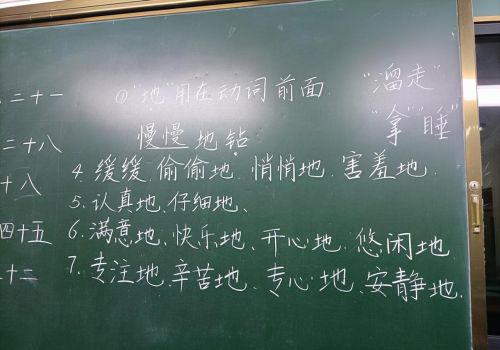 二十一
①"地"用在动词前面 "溜走"
"拿""睡"
二十八
慢慢地钻
4.缓缓、偷偷地、悄悄地、害羞地.
十八
5.认真地、仔细地、
四十五
6.满意地、快乐地、开心地、悠闲地
十二
7.专注地、辛苦地、专心地、安静地.